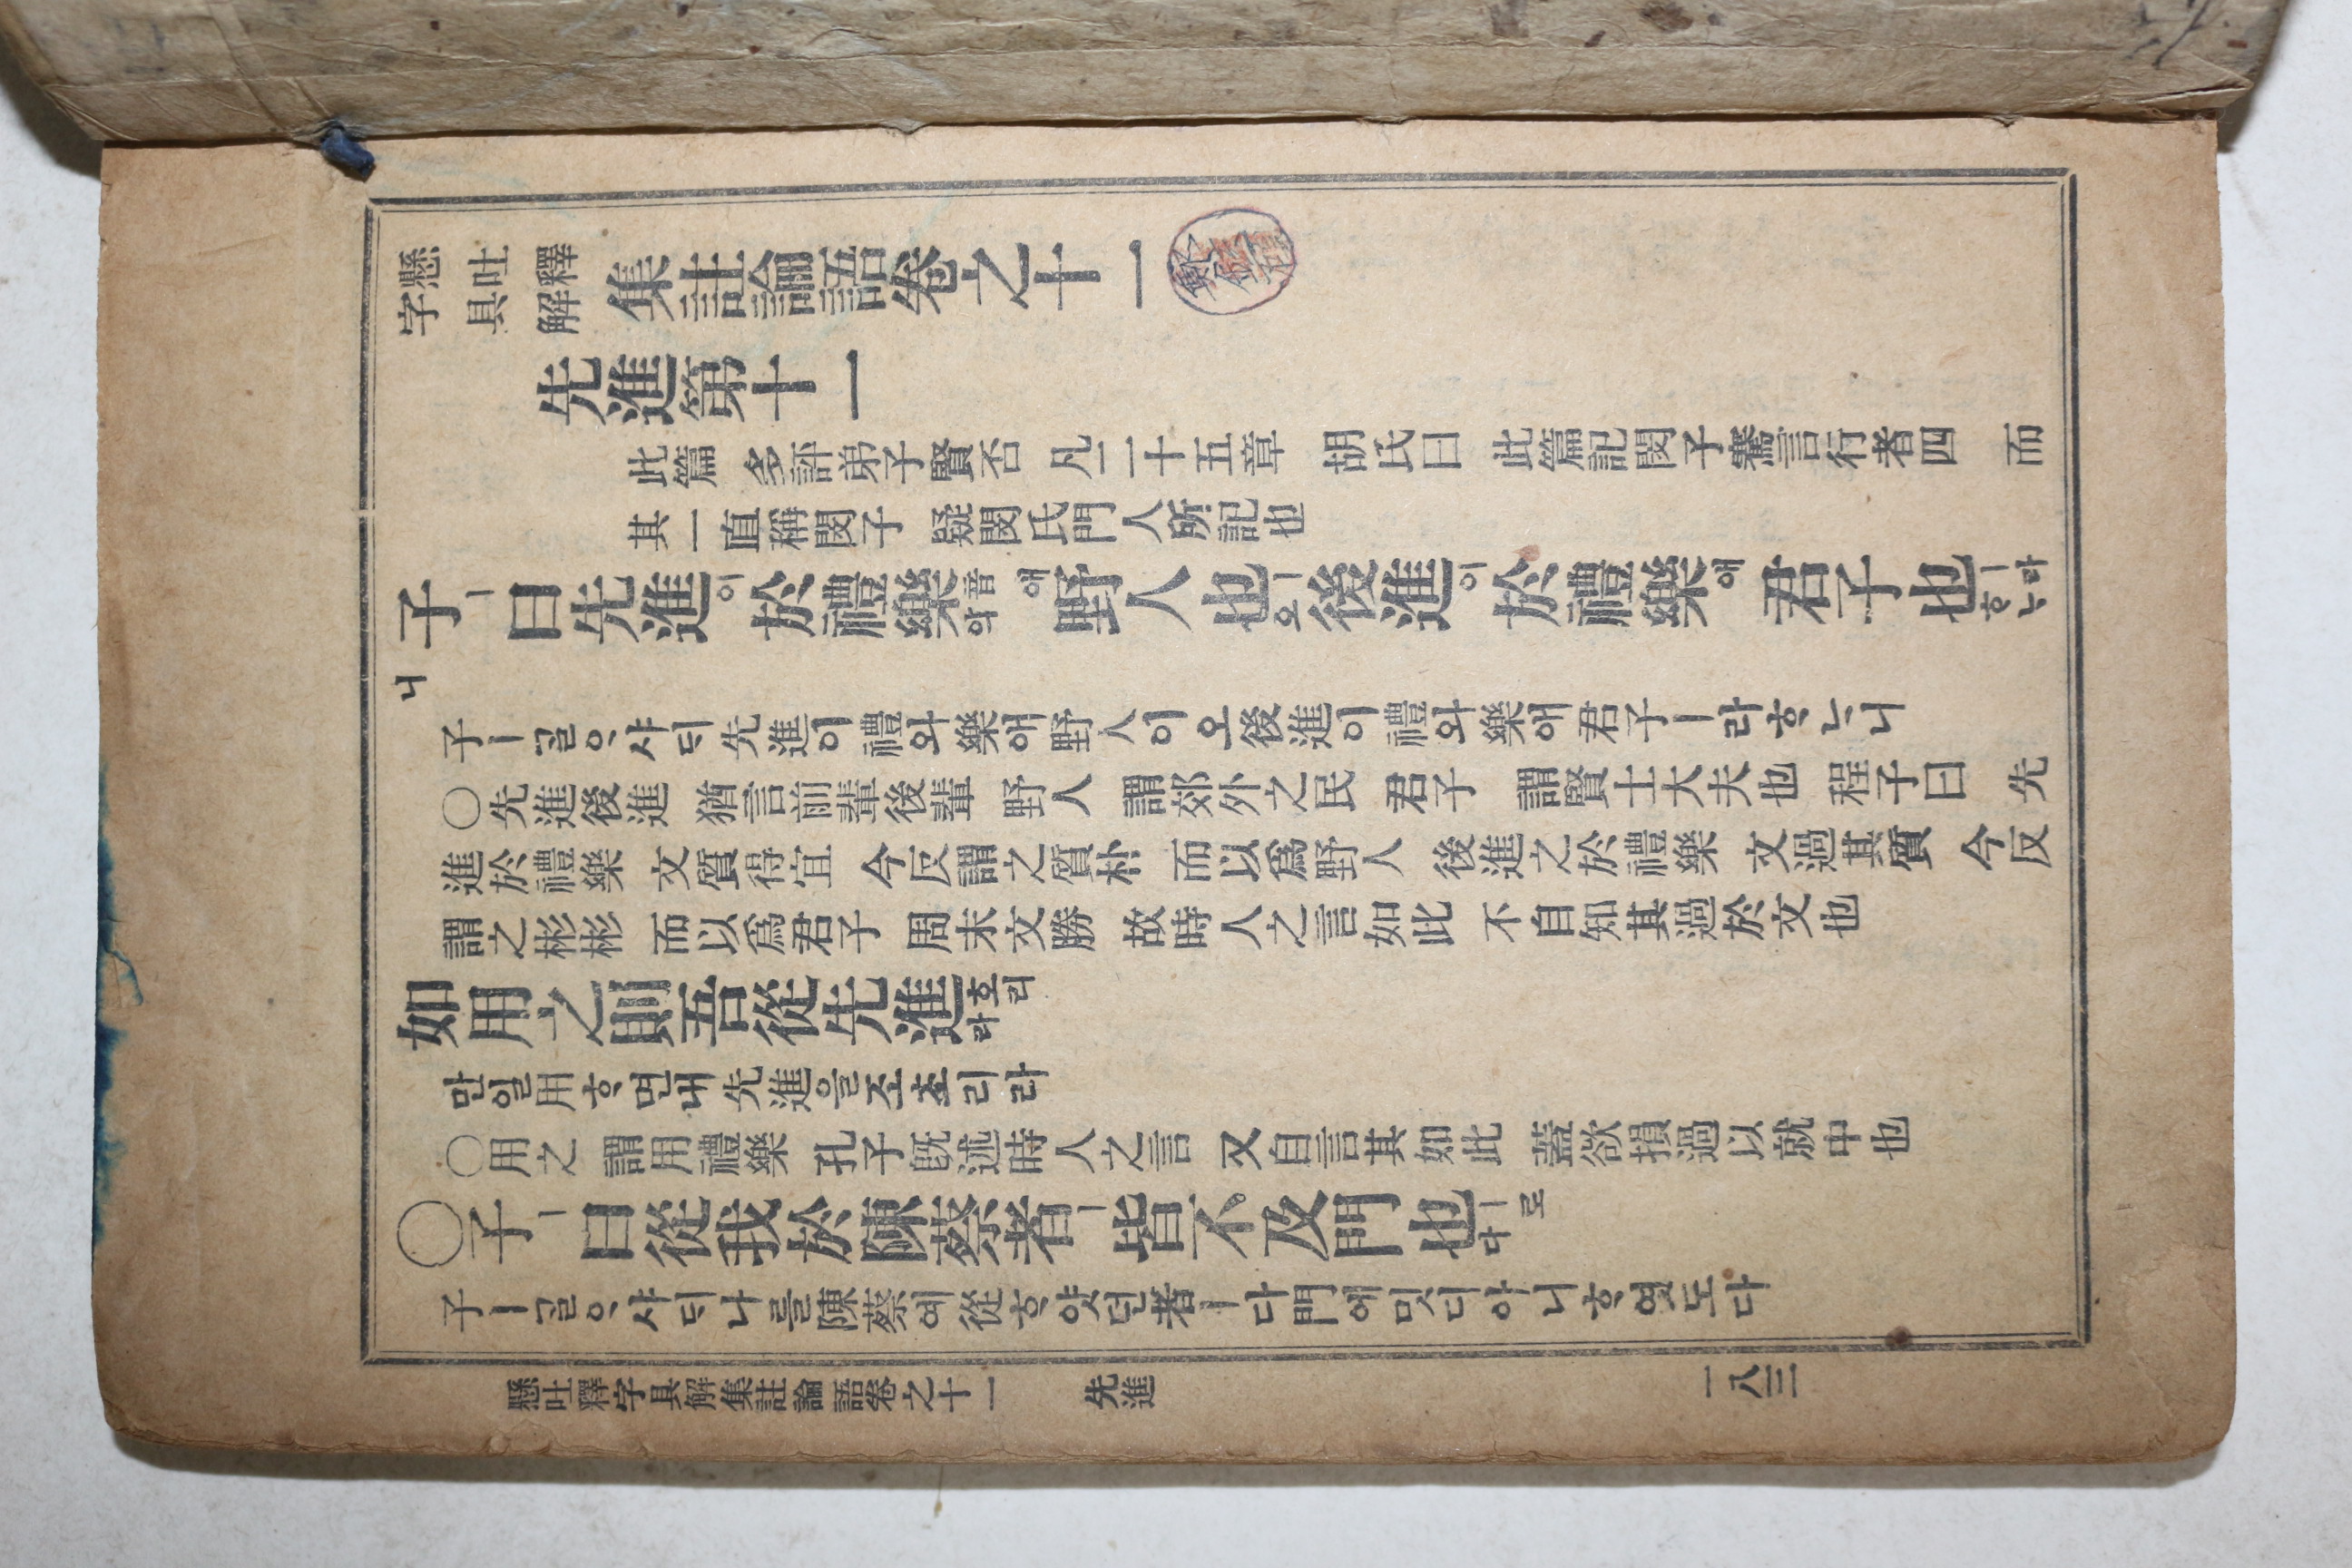 懸吐釋字具解集註論語卷之十一
先進第十一
此篇 多評弟子賢否 凡二十五章 胡氏曰 此篇記閔子騫言行者四 而
其一直稱閔子 疑閔氏門人所記也
子ㅣ曰先進이於禮樂音악애野人也ㅣ오後進이於禮樂애君子也ㅣ라ᄒᆞᄂᆞ
니
子ㅣᄀᆞᆯᄋᆞ샤ᄃᆡ先進이禮와樂애野人이오後進이禮와樂애君子ㅣ라ᄒᆞᄂᆞ니
○先進後進 猶言前輩後輩 野人 謂郊外之民 君子 謂賢士大夫也 程子曰 先
進於禮樂 文質得宜 今反謂之質朴 而以爲野人 後進之於禮樂 文過其質 今反
謂之彬彬 而以爲君子 周末文勝 故時人之言如此 不自知其過於文也
如用之則吾從先進호리라
만일用ᄒᆞ면내先進을조초리라
○用之 謂用禮樂 孔子旣述時人之言 又自言其如此 蓋欲損過以就中也
○子ㅣ曰從我於陳蔡者ㅣ皆不及門也ㅣ로다
子ㅣᄀᆞᆯᄋᆞ샤ᄃᆡ나를陳蔡예從ᄒᆞ얏던者ㅣ다門에밋디아니ᄒᆞ엿도다
懸吐釋字具解集註論語卷之十一 先進 一八三